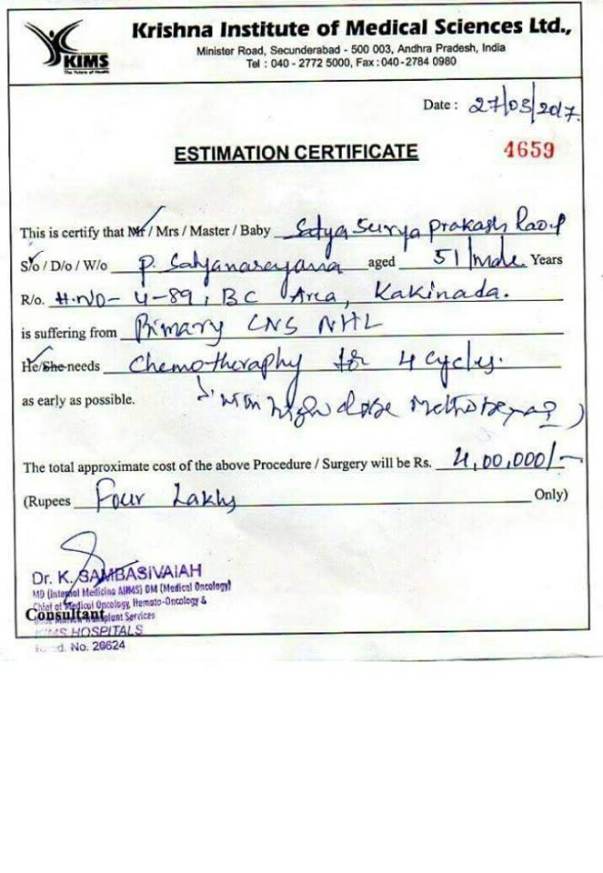 Krishna Institute of Medical Sciences Ltd.,
KIMS
The Future of Health
Minister Road, Secunderabad - 500 003, Andhra Pradesh, India
Tel : 040 - 2772 5000, Fax : 040-2784 0980
Date : 27/03/2017.
ESTIMATION CERTIFICATE 4659
This is certify that Mr / Mrs / Master / Baby Satya Surya Prakash Rao P
S/o / D/o / W/o P. Satyanarayana aged 51/male Years
R/o. H.NO- 4-89, BC Area, Kakinada.
is suffering from Primary CNS NHL
He/She needs Chemotheraphy for 4 cycles.
as early as possible. high dose
The total approximate cost of the above Procedure / Surgery will be Rs. 4,00,000/-
(Rupees Four Lakhs Only)
Dr. K. SAMBASIVAIAH
MD (Internal Medicine AIIMS) DM (Medical Oncology)
Chief of Medical Oncology, Hemato-Oncology &
Consultant Services
KIMS HOSPITALS
No. 26624